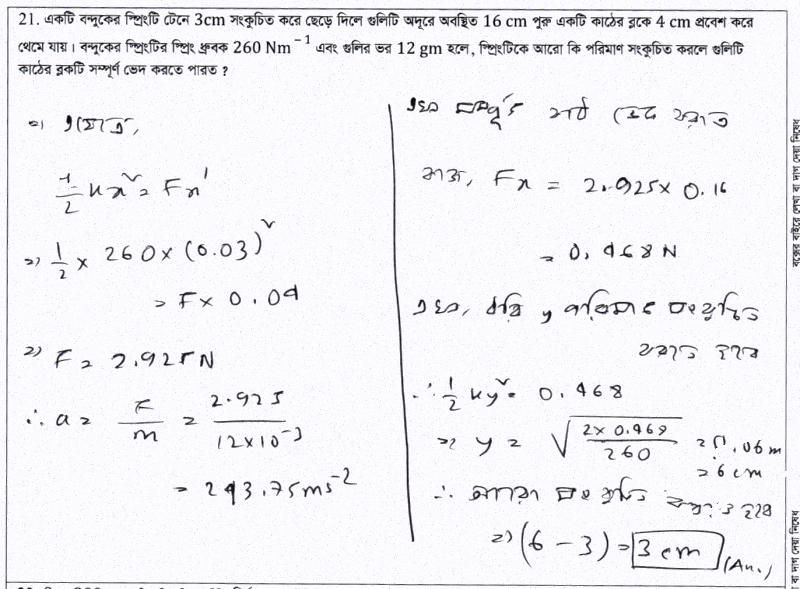 21. একটি বন্দুকের স্প্রিংটি টেনে 3cm সংকুচিত করে ছেড়ে দিলে গুলিটি অদূরে অবস্থিত 16 cm পুরু একটি কাঠের ব্লকে 4 cm প্রবেশ করে
থেমে যায়। বন্দুকের স্প্রিংটির স্প্রিং ধ্রুবক 260 Nm⁻¹ এবং গুলির ভর 12 gm হলে, স্প্রিংটিকে আরো কি পরিমাণ সংকুচিত করলে গুলিটি
কাঠের ব্লকটি সম্পূর্ণ ভেদ করতে পারত ?
এখানে,
1/2 kx² = Fx'
⇒ 1/2 × 260 × (0.03)²
= F × 0.04
⇒ F = 2.925 N
∴ a = F/m = 2.925/(12×10⁻³)
= 243.75 ms⁻²
এখন সম্পূর্ণ কাঠ ভেদ করতে
কাজ, Fx = 2.925 × 0.16
= 0.468 N
এখন, ধরি y পরিমাণ সংকুচিত
করতে হবে
∴ 1/2 ky² = 0.468
⇒ y = √(2×0.468/260) = 0.06 m
= 6 cm
∴ আরো সংকুচিত করতে হবে
= (6 − 3) = 3 cm (An.)
বক্সের বাইরে লেখা বা দাগ দেয়া নিষেধ
বা দাগ দেয়া নিষেধ